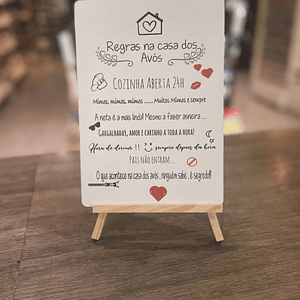 Regras na casa dos
Avós
Cozinha Aberta 24h
Mimos, mimos, mimos ...... Muitos Mimos e sempre
A neta é a mais linda! Mesmo a fazer asneira ...
Gargalhadas, amor e carinho a toda a hora!
Hora de dormir !! sempre depois da hora
Pais não entram...
O que acontece na casa dos avós , ninguém sabe , é segredo!!